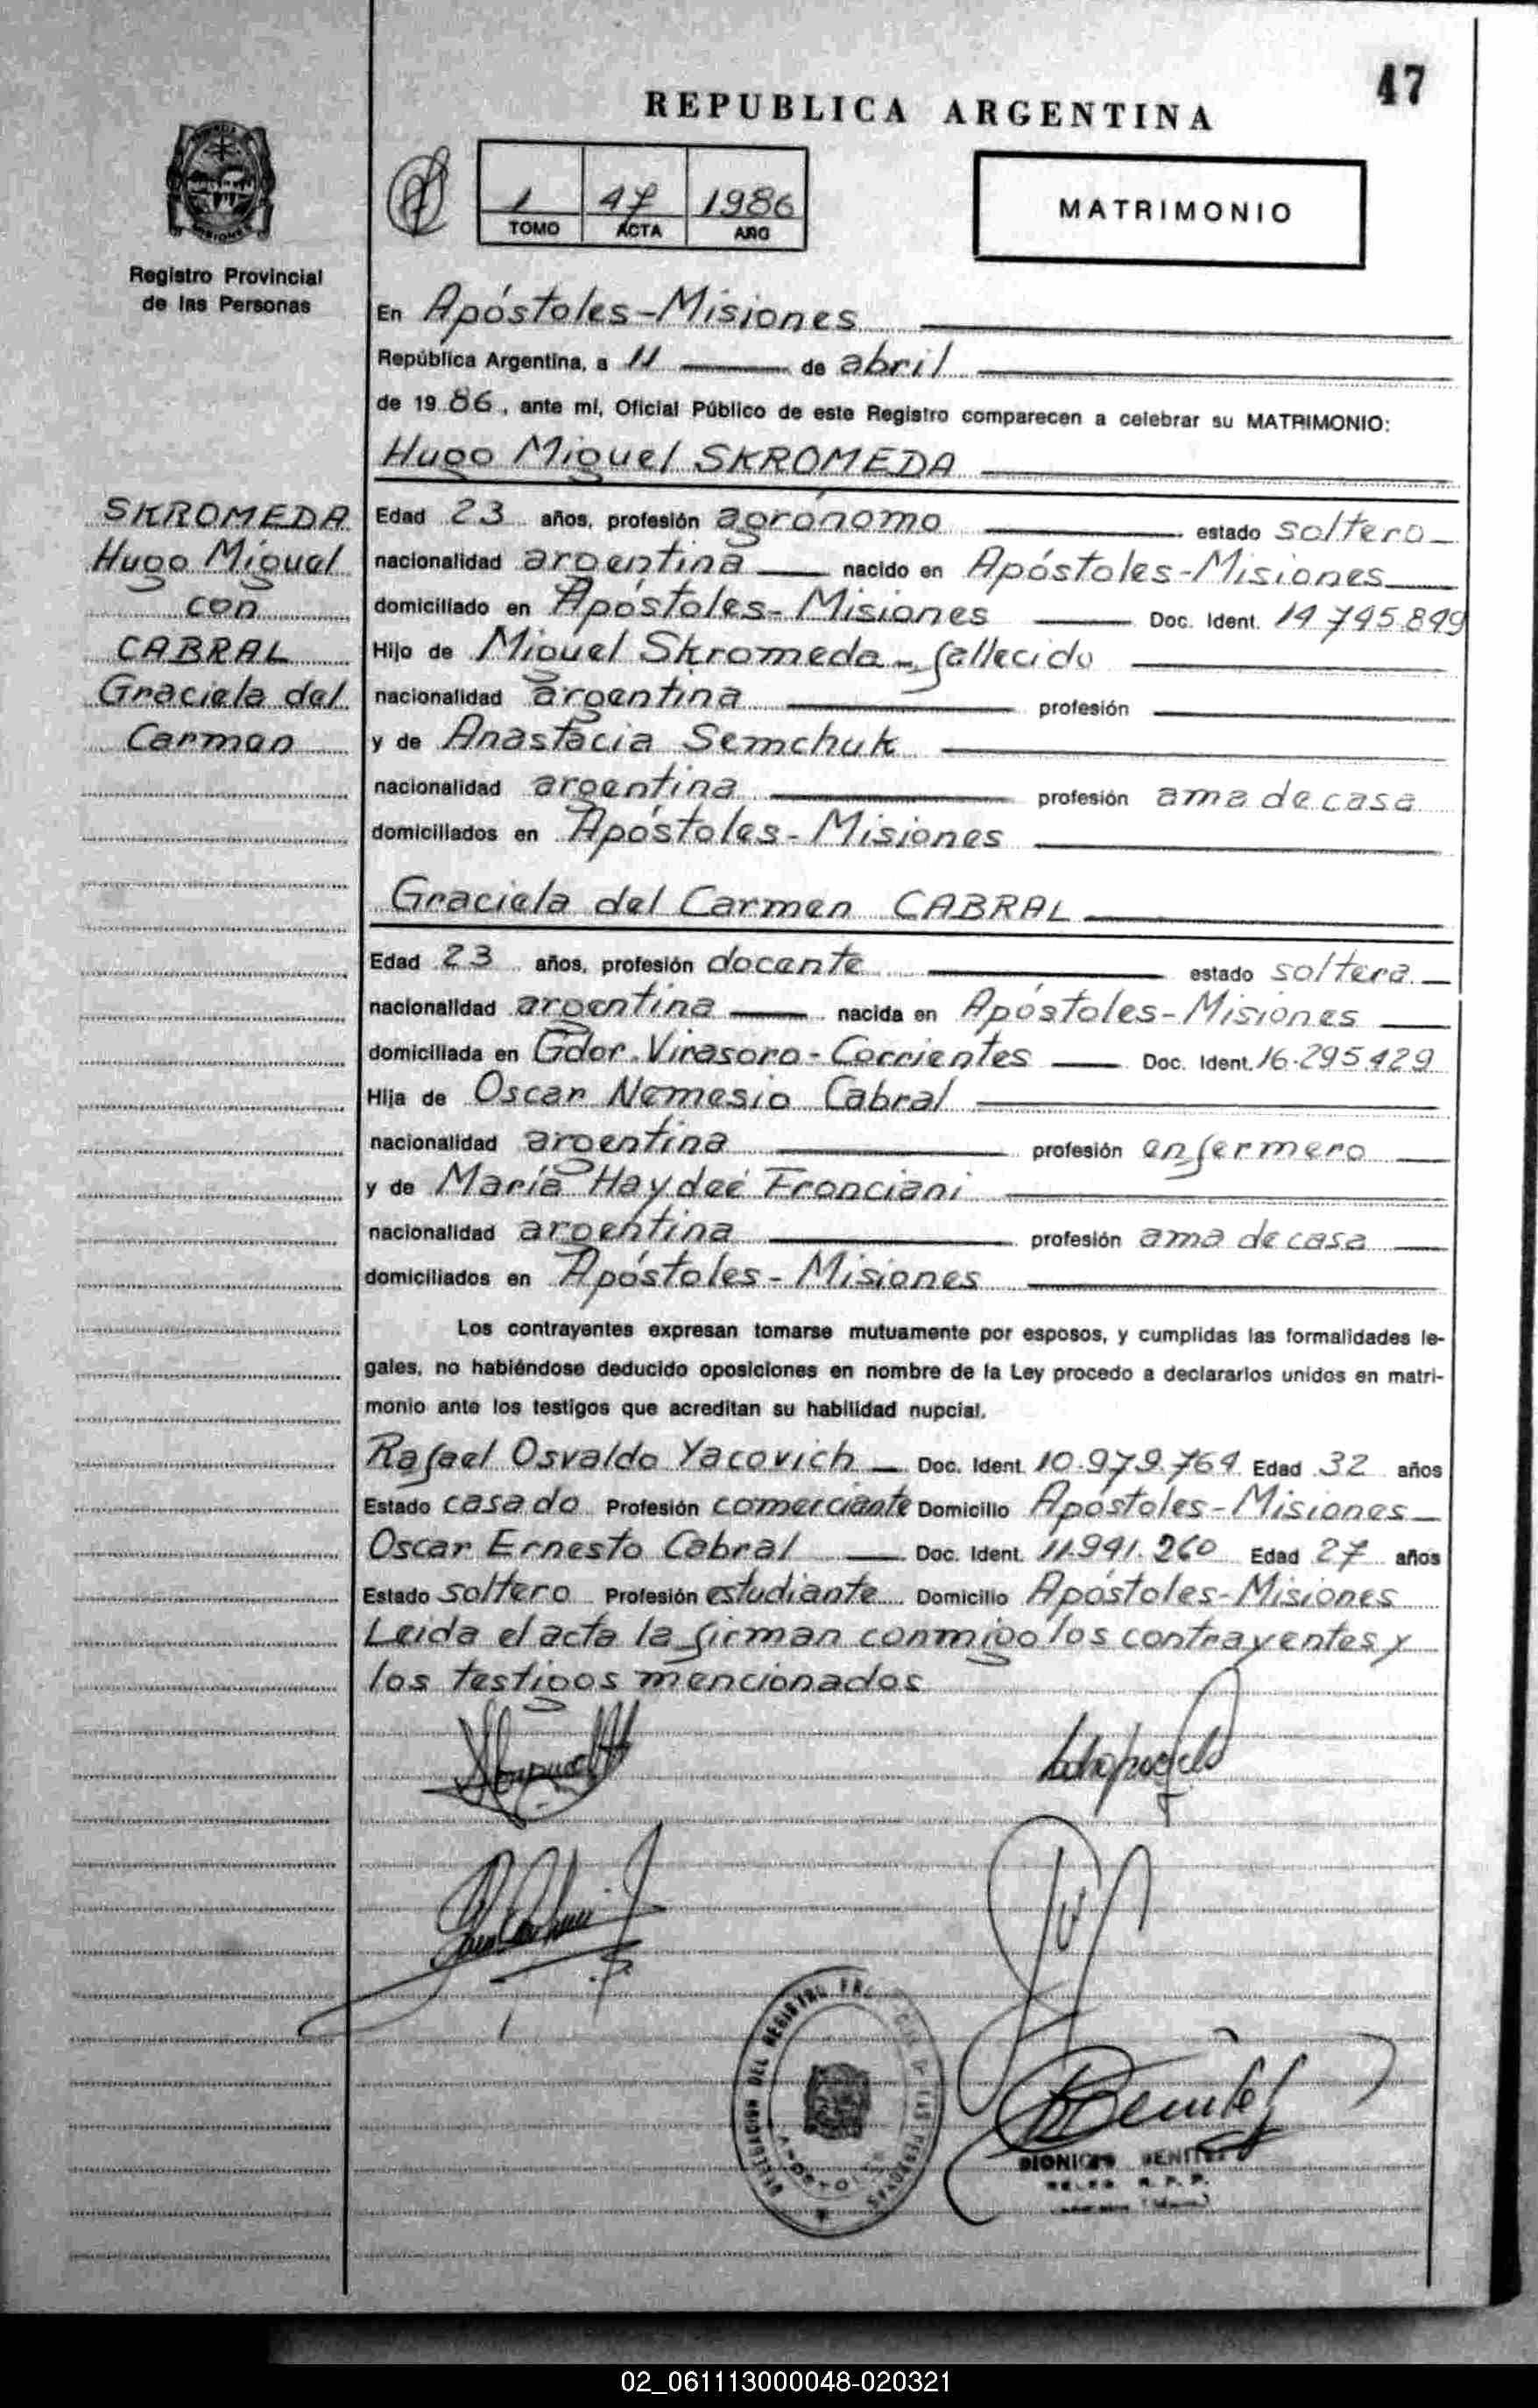 47
REPUBLICA ARGENTINA
1 47 1986
TOMO ACTA AÑO
MATRIMONIO
MISIONES
Registro Provincial
de las Personas
En Apóstoles-Misiones
República Argentina, a 11 de abril
de 19 86, ante mí, Oficial Público de este Registro comparecen a celebrar su MATRIMONIO:
Hugo Miguel SKROMEDA
SKROMEDA
Hugo Miguel
con
CABRAL
Graciela del
Carmen
Edad 23 años, profesión agrónomo estado soltero
nacionalidad argentina nacido en Apóstoles-Misiones
domiciliado en Apóstoles-Misiones Doc. Ident. 14.745.849
Hijo de Miguel Skromeda - fallecido
nacionalidad argentina profesión
y de Anastacia Semchuk
nacionalidad argentina profesión ama de casa
domiciliados en Apóstoles-Misiones
Graciela del Carmen CABRAL
Edad 23 años, profesión docente estado soltera
nacionalidad argentina nacida en Apóstoles-Misiones
domiciliada en Gdor. Virasoro-Corrientes Doc. Ident. 16.295.429
Hija de Oscar Nemesio Cabral
nacionalidad argentina profesión enfermero
y de María Haydeé Fronciani
nacionalidad argentina profesión ama de casa
domiciliados en Apóstoles-Misiones
Los contrayentes expresan tomarse mutuamente por esposos, y cumplidas las formalidades le-
gales, no habiéndose deducido oposiciones en nombre de la Ley procedo a declararlos unidos en matri-
monio ante los testigos que acreditan su habilidad nupcial.
Rafael Osvaldo Yacovich Doc. Ident. 10.979.764 Edad 32 años
Estado casado Profesión comerciante Domicilio Apóstoles-Misiones
Oscar Ernesto Cabral Doc. Ident. 11.941.260 Edad 27 años
Estado soltero Profesión estudiante Domicilio Apóstoles-Misiones
Leída el acta la firman conmigo los contrayentes y
los testigos mencionados
DELEGACION DEL REGISTRO DE LAS PERSONAS
Benitez
DIONICIO BENITEZ
R. P. P.
02_061113000048-020321